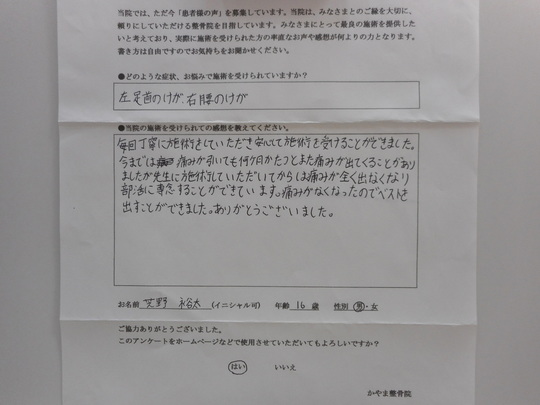 当院では、ただ今「患者様の声」を募集しています。当院は、みなさまとのご縁を大切に、
頼りにしていただける整骨院を目指しています。みなさまにとって最良の施術を提供した
いと考えており、実際に施術を受けられた方の率直なお声や感想が何よりの力となります。
書き方は自由ですのでお気持ちをお聞かせください。
●どのような症状、お悩みで施術を受けられていますか？
左足首のけが、右腰のけが
●当院の施術を受けられての感想を教えてください。
毎回丁寧に施術をしていただき安心して施術を受けることができました。
今までは痛みが引いても何ヶ月かたつとまた痛みが出てくることがあり
ましたが先生に施術していただいてからは痛みが全く出なくなり
部活に専念することができています。痛みがなくなったのでベストを
出すことができました。ありがとうございました。
お名前 野 裕太 （イニシャル可） 年齢 16 歳 性別 男・女
ご協力ありがとうございました。
このアンケートをホームページなどで使用させていただいてもよろしいですか？
はい いいえ
かやま整骨院